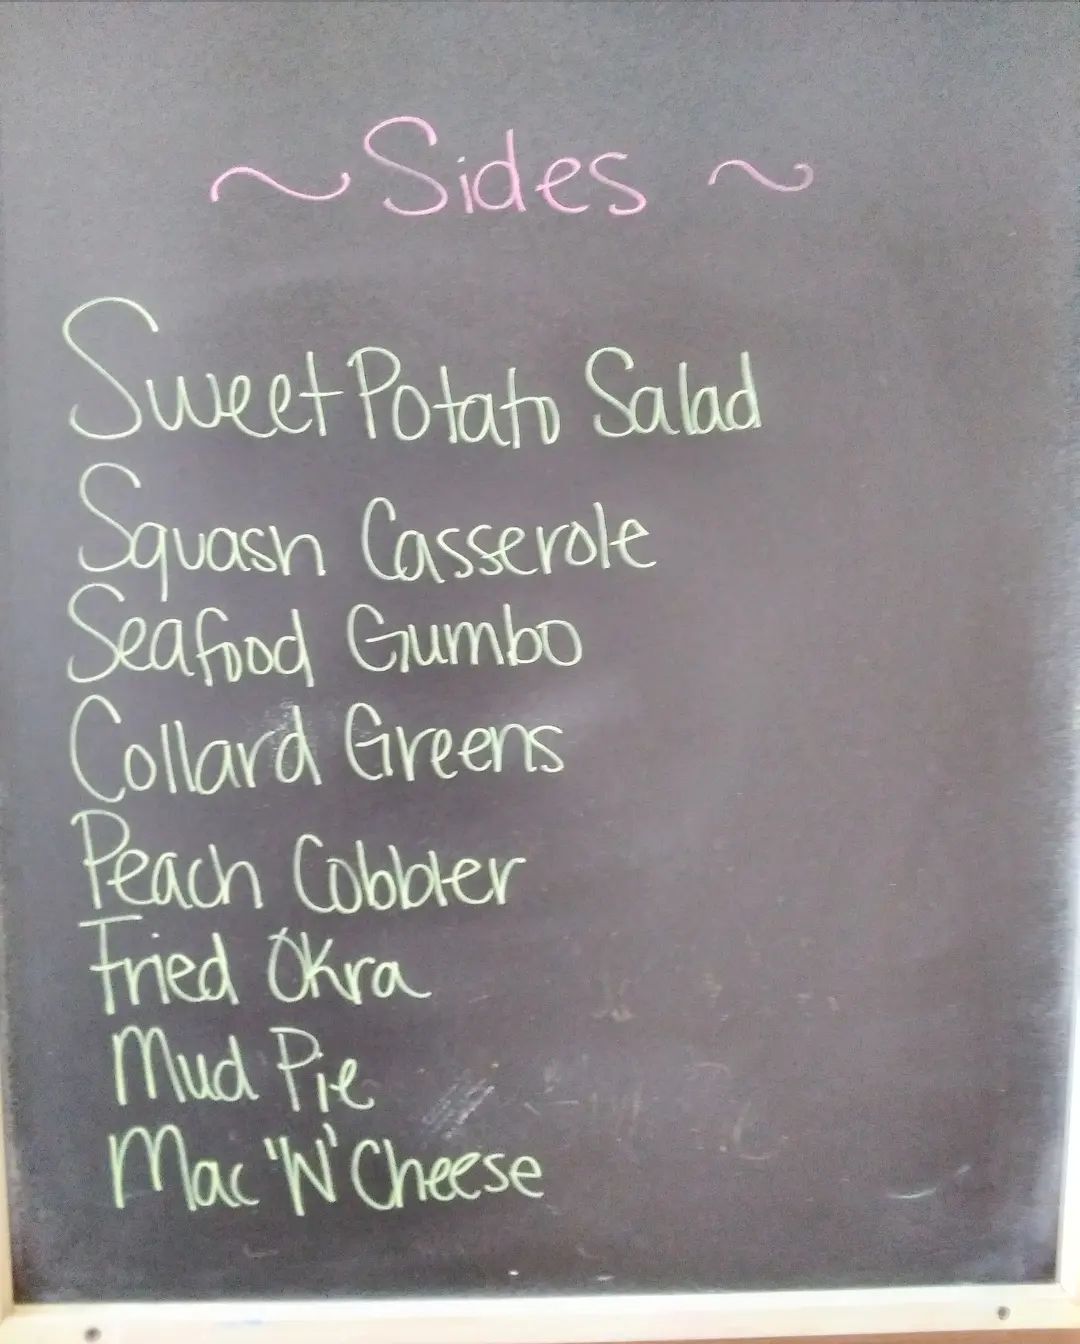 ~ Sides ~
Sweet Potato Salad
Squash Casserole
Seafood Gumbo
Collard Greens
Peach Cobbler
Fried Okra
Mud Pie
Mac 'N' Cheese